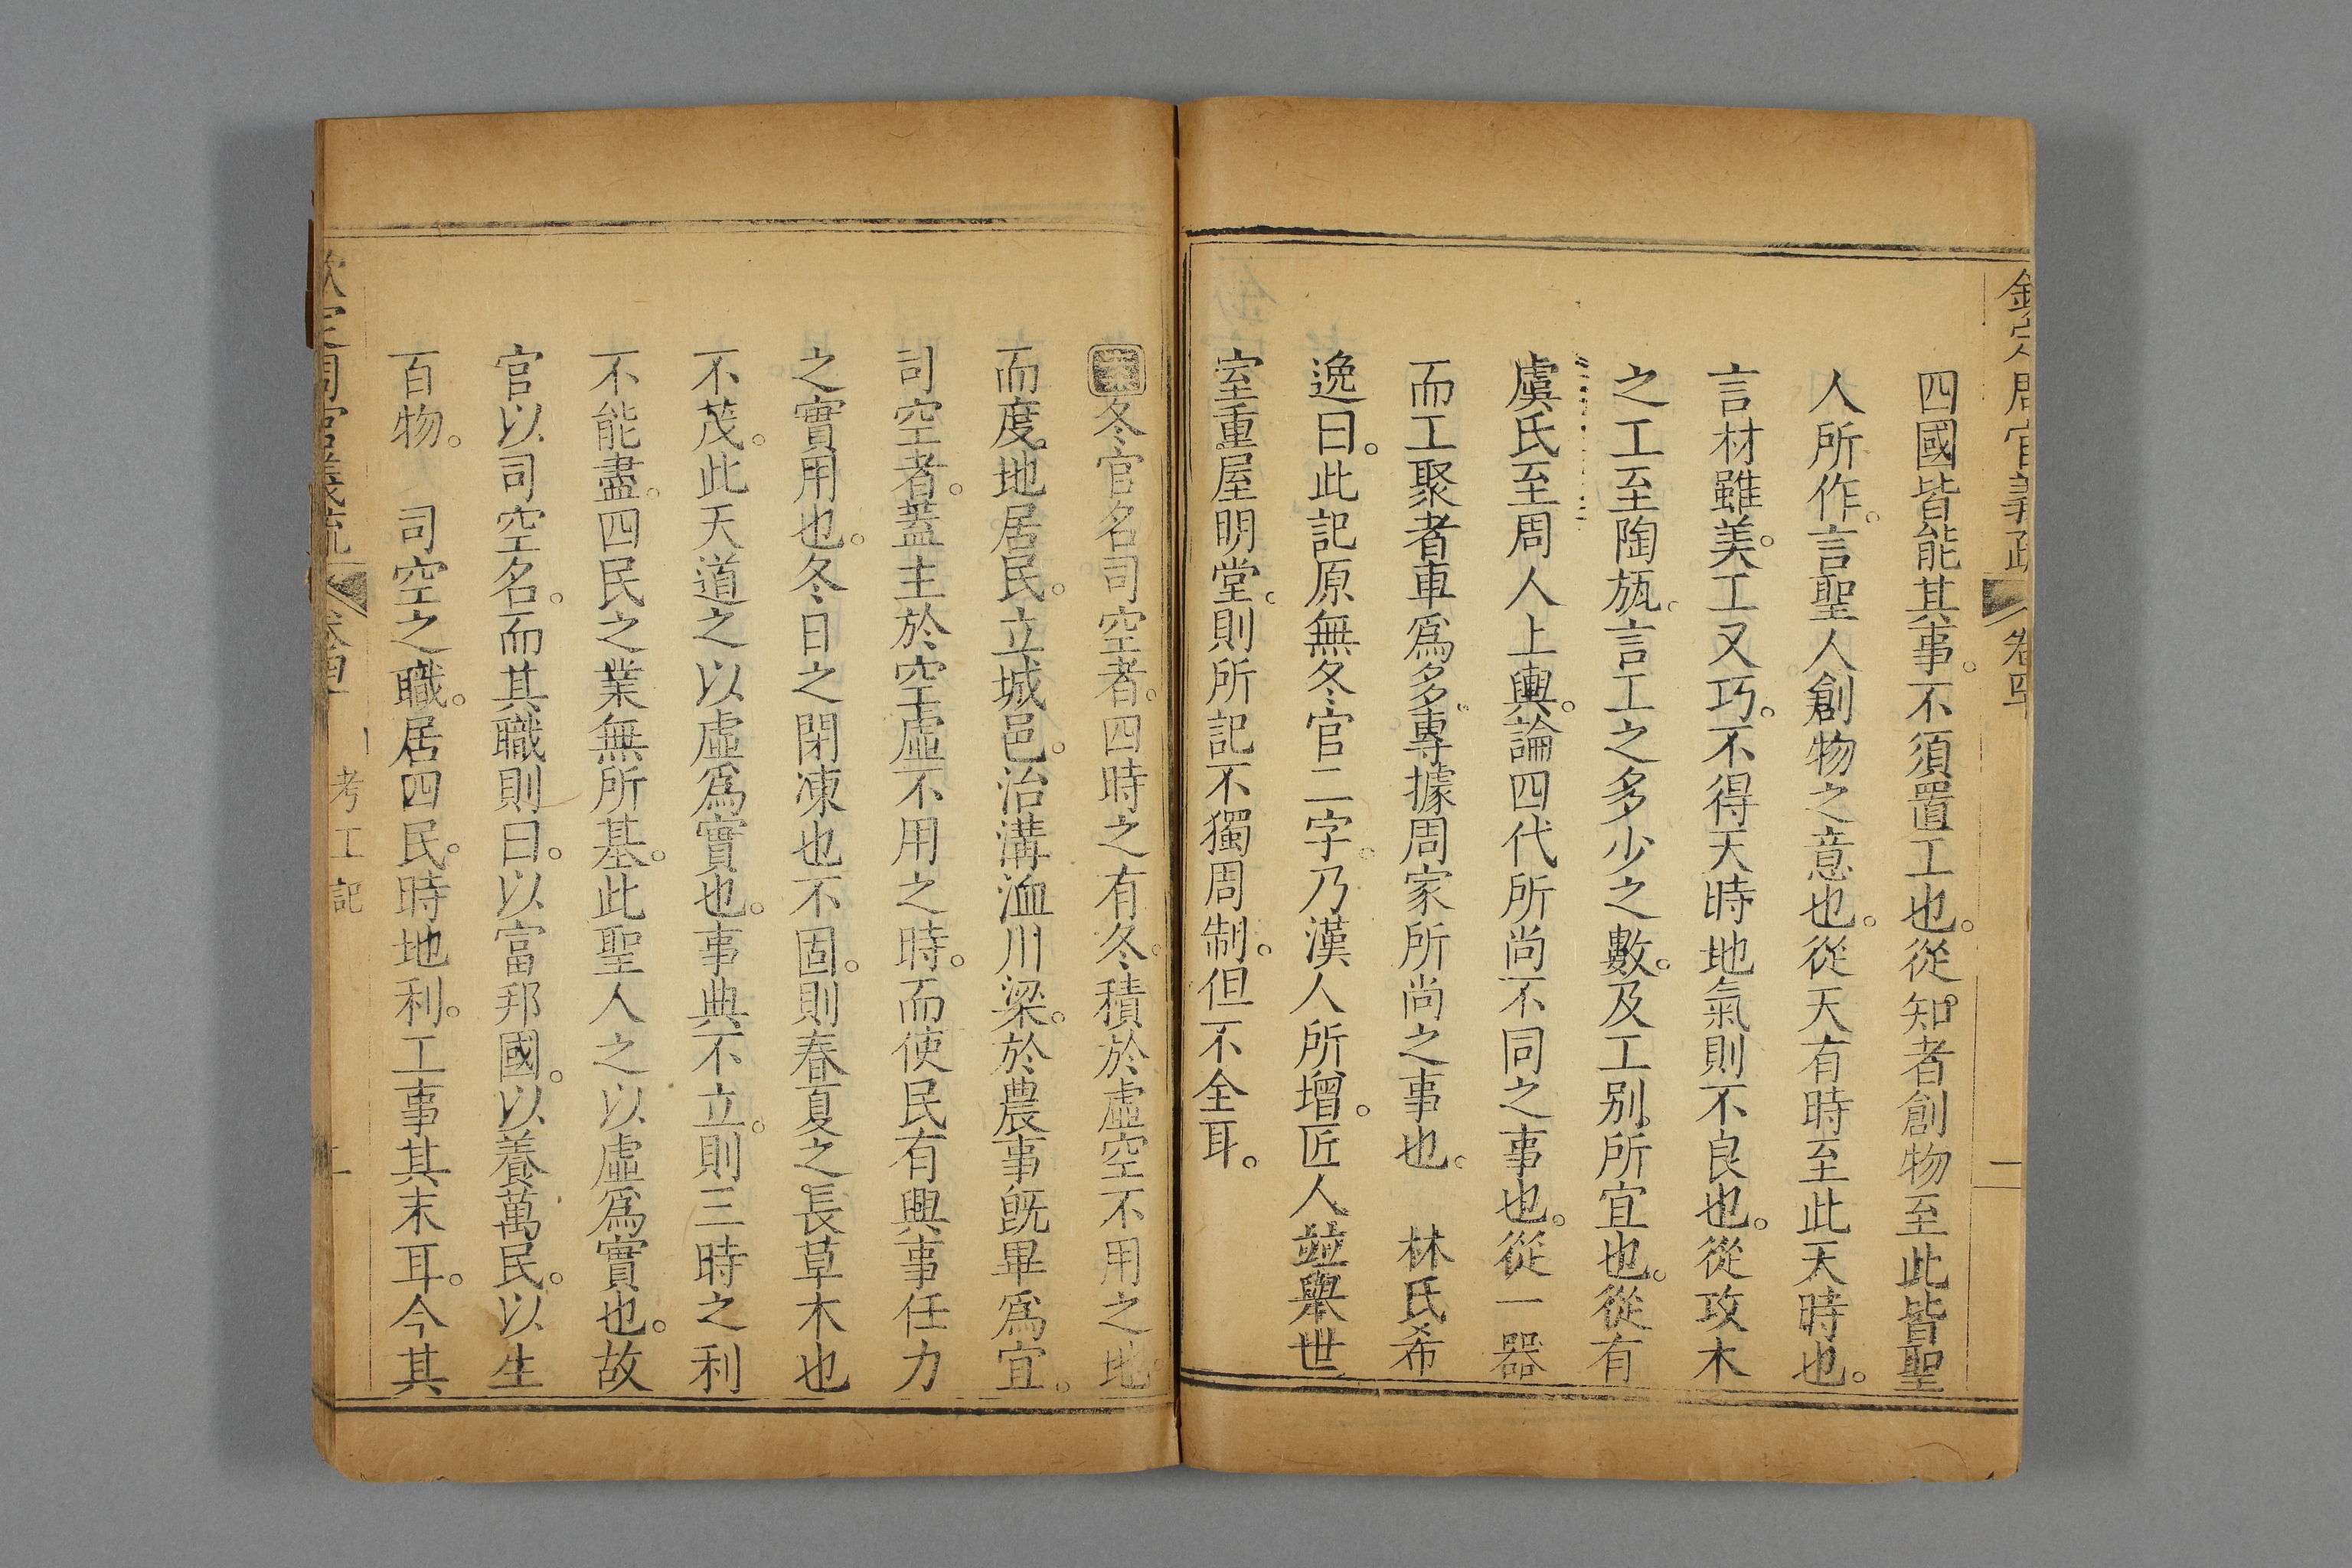 欽定周官義疏
卷四
四國皆能其事。不須置工也。從知者創物至此皆聖
人所作。言聖人創物之意也。從天有時至此天時也。
言材雖美。工又巧。不得天時地氣則不良也。從攻木
之工至陶瓬。言工之多少之數。及工別所宜也。從有
虞氏至周人上輿。論四代所尚不同之事也。從一器
而工聚者車爲多。專據周家所尚之事也。 林氏希
逸曰。此記原無冬官二字。乃漢人所增。匠人竝舉世
室重屋明堂。則所記不獨周制。但不全耳。
冬官名司空者。四時之有冬。積於虛空不用之地。
而度地居民。立城邑。治溝洫川梁。於農事旣畢爲宜。
司空者。葢主於空虛不用之時。而使民有興事任力
之實用也。冬日之閉凍也不固。則春夏之長草木也
不茂。此天道之以虛爲實也。事典不立。則三時之利
不能盡。四民之業無所基。此聖人之以虛爲實也。故
官以司空名。而其職則曰。以富邦國。以養萬民。以生
百物。 司空之職。居四民。時地利。工事其末耳。今其
欽定周官義疏
考工記